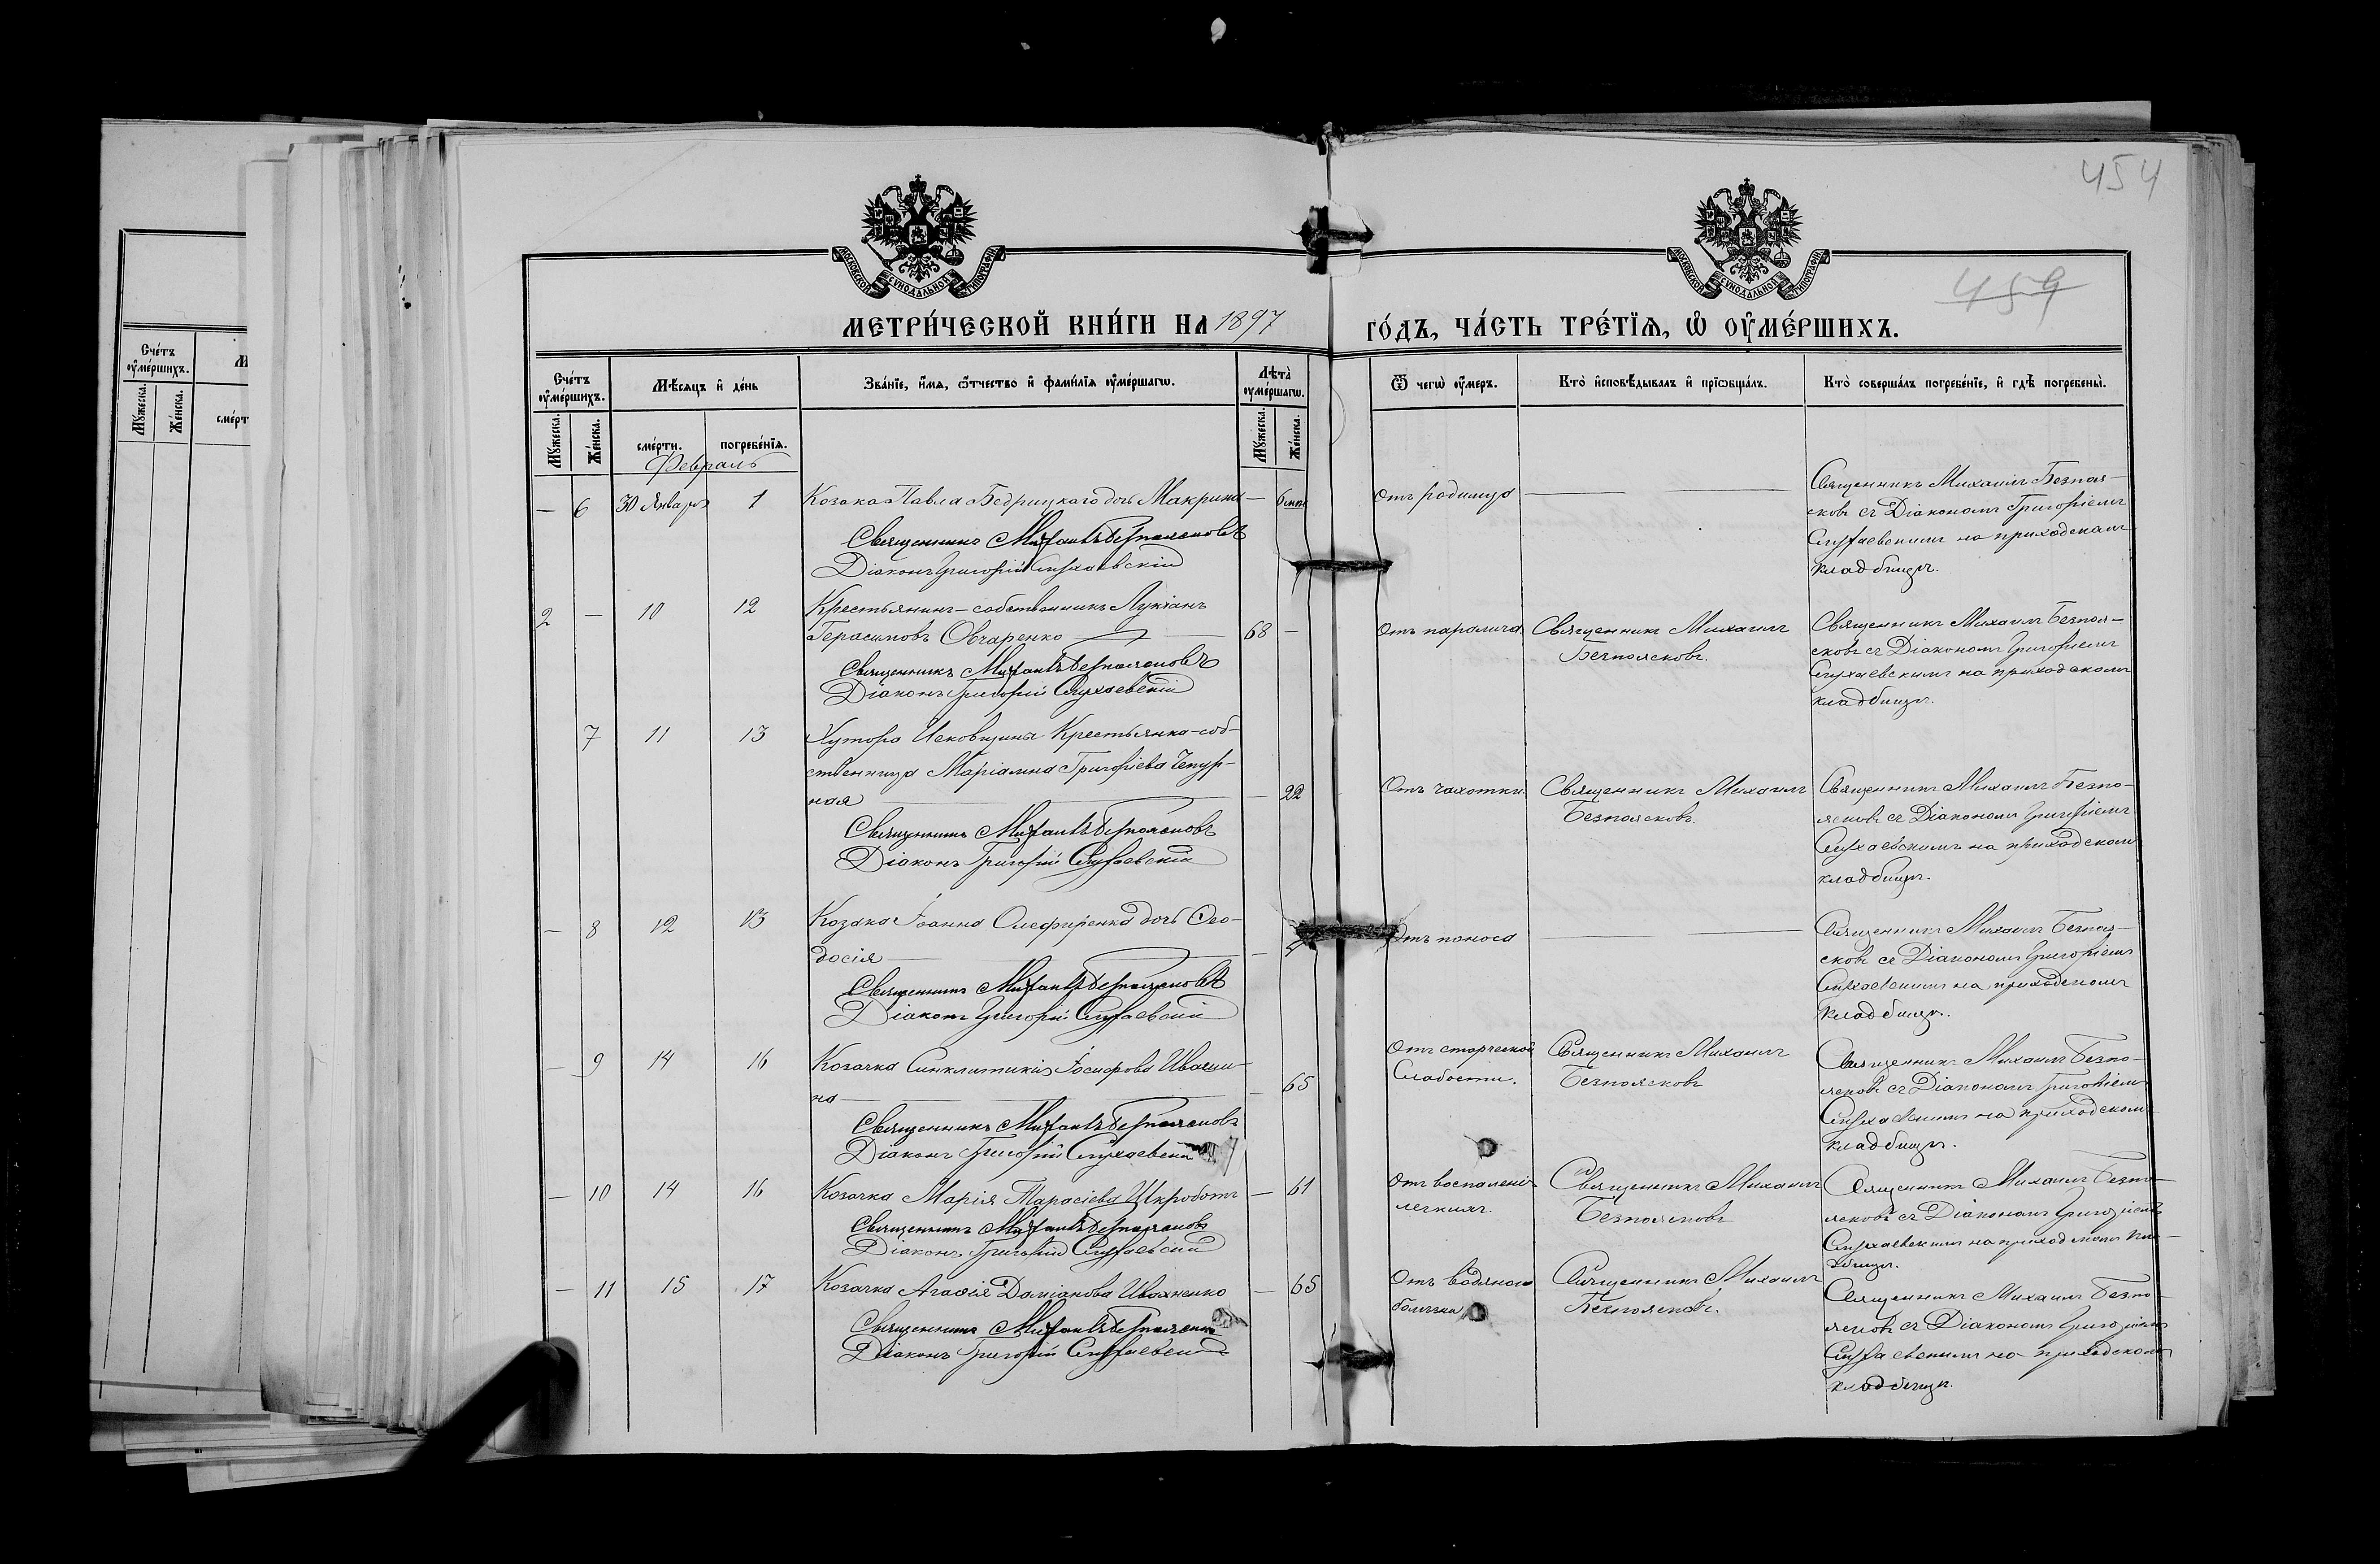 454
459
МОСКОВСКОЙ СѴНОДАЛЬНОЙ ТИПОГРАФІИ
МОСКОВСКОЙ СѴНОДАЛЬНОЙ ТИПОГРАФІИ
МЕТРИ́ЧЕСКОЙ КНИ́ГИ НА 1897 ГО́ДЪ, ЧА́СТЬ ТРЕ́ТЇѦ, Ѡ҆ ОУ҆МЕ́РШИХЪ.
Сче́тъ оу҆ме́ршихъ.
Мꙋ́жеска. Же́нска.
Мѣ́сяцъ и҆ де́нь
сме́рти. погребе́нїѧ.
Зва́нїе, и҆́мѧ, ѻ҆́тчество и҆ фами́лїѧ оу҆ме́ршагѡ.
Лѣ́та оу҆ме́ршагѡ.
Мꙋ́жеска. Же́нска.
Ѿ чегѡ̀ оу҆́меръ.
Кто̀ и҆сповѣ́дывалъ и҆ прїѡбща́лъ.
Кто̀ соверша́лъ погребе́нїе, и҆ гдѣ̀ погребены̀.
Сче́тъ
оу҆ме́ршихъ.
Мꙋ́жеска. Же́нска.
сме́рт
Февраль
— 6 30 Января 1 Козака Павла Бедрицкаго дочь Макрина —
Священникъ Михаилъ Безпоясковъ
Діаконъ Григорій Слухаевскій
Отъ родимца
Священникъ Михаилъ Безпоя-
сковъ съ Діакономъ Григоріемъ
Слухаевскимъ на приходскомъ
кладбищѣ.
2 — 10 12 Крестьянинъ-собственникъ Лукіанъ
Герасимовъ Овчаренко — 68 —
Священникъ Михаилъ Безпоясковъ
Діаконъ Григорій Слухаевскій
Отъ паралича.
Священникъ Михаилъ
Безпоясковъ.
Священникъ Михаилъ Безпоя-
сковъ съ Діакономъ Григоріемъ
Слухаевскимъ на приходскомъ
кладбищѣ.
7 11 13 Хутора Исковщина Крестьянка-соб-
ственница Маріамна Григоріева Чепур-
ная — 22
Священникъ Михаилъ Безпоясковъ
Діаконъ Григорій Слухаевскій
Отъ чахотки.
Священникъ Михаилъ
Безпоясковъ.
Священникъ Михаилъ Безпо-
ясковъ съ Діакономъ Григоріемъ
Слухаевскимъ на приходскомъ
кладбищѣ.
— 8 12 13 Козака Іоанна Олефиренка дочь Ѳео-
досія —
Священникъ Михаилъ Безпоясковъ
Діаконъ Григорій Слухаевскій
Отъ поноса
Священникъ Михаилъ Безпоя-
сковъ съ Діакономъ Григоріемъ
Слухаевскимъ на приходскомъ
кладбищѣ.
— 9 14 16 Козачка Синклитикія Іосифова Иваши-
на — 65
Священникъ Михаилъ Безпоясковъ
Діаконъ Григорій Слухаевскій
Отъ старческой
слабости.
Священникъ Михаилъ
Безпоясковъ
Священникъ Михаилъ Безпо-
ясковъ съ Діакономъ Григоріемъ
Слухаевскимъ на приходскомъ
кладбищѣ.
— 10 14 16 Козачка Марія Тарасіева Шкроботъ — 61
Священникъ Михаилъ Безпоясковъ
Діаконъ Григорій Слухаевскій
Отъ воспаленія
легкихъ.
Священникъ Михаилъ
Безпоясковъ
Священникъ Михаилъ Безпо-
ясковъ съ Діакономъ Григоріемъ
Слухаевскимъ на приходскомъ кла-
дбищѣ.
— 11 15 17 Козачка Агаѳія Даміанова Ивахненко — 65
Священникъ Михаилъ Безпоясковъ
Діаконъ Григорій Слухаевскій
Отъ водяной
болѣзни
Священникъ Михаилъ
Безпоясковъ.
Священникъ Михаилъ Безпо-
ясковъ съ Діакономъ Григоріемъ
Слухаевскимъ на приходскомъ
кладбищѣ.